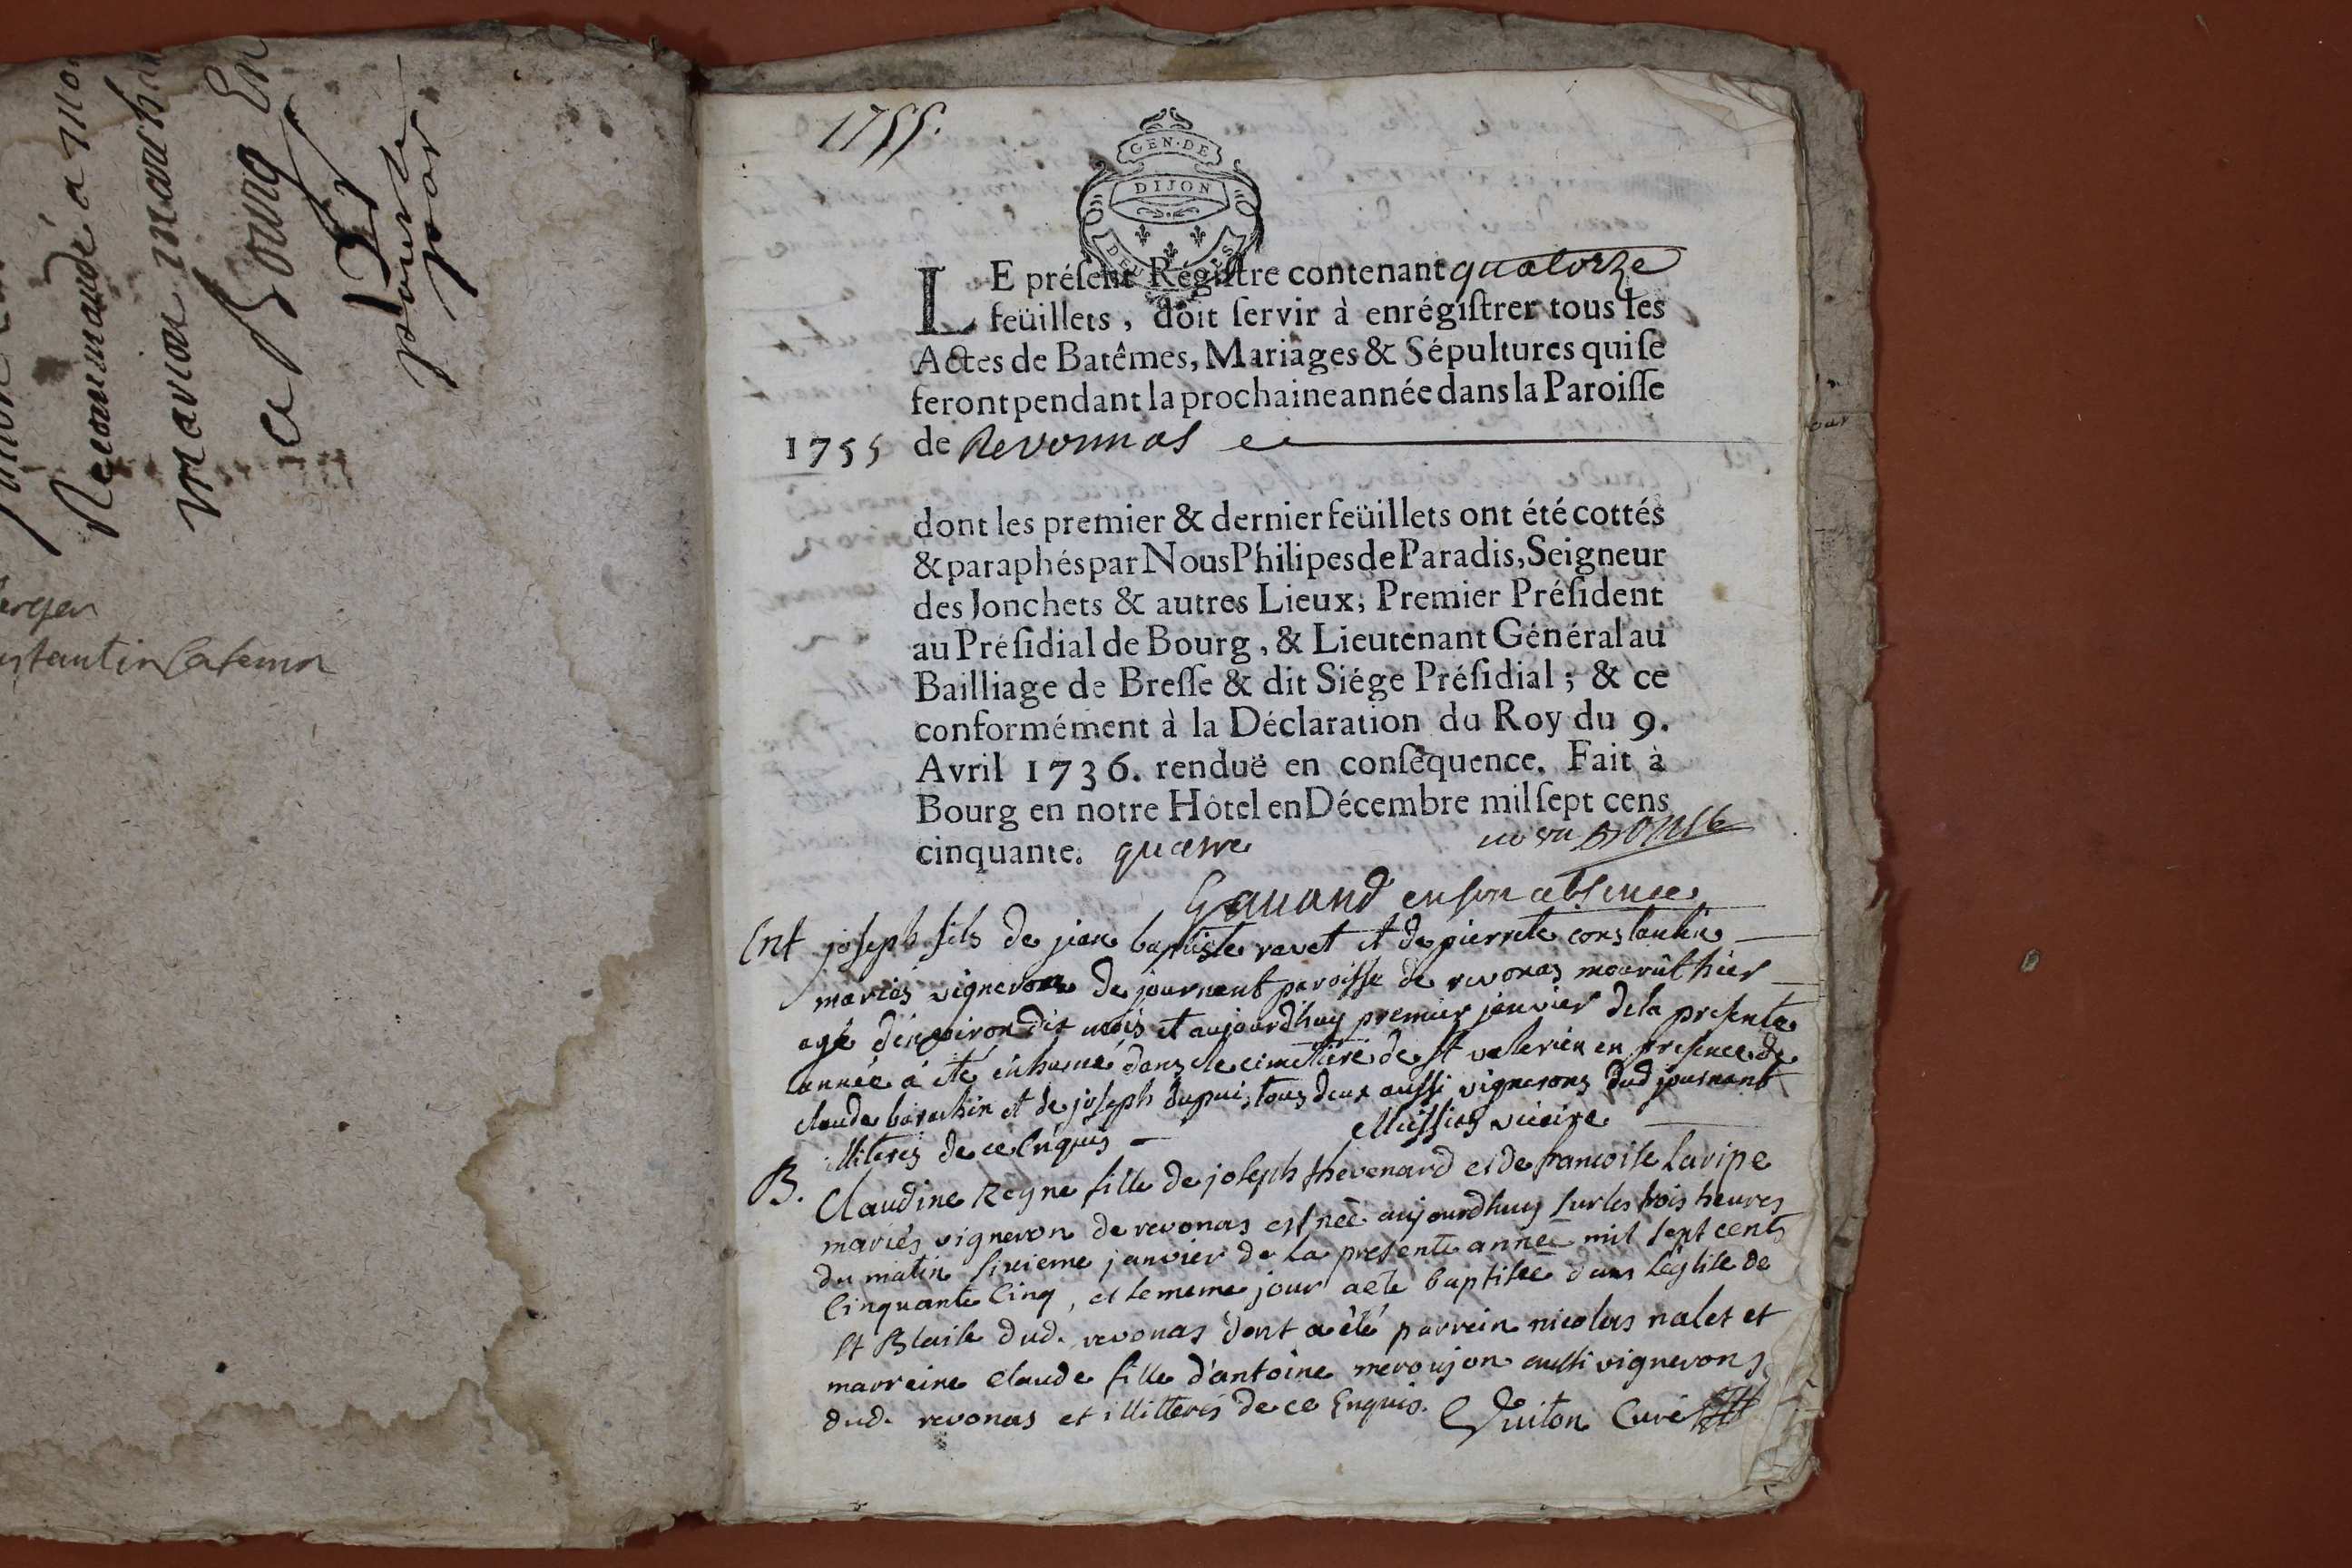 Recommandé a
mavian
a Bourg En
pour le
por
1755.
GEN·DE
DIJON
LE préſent Régiſtre contenant quatorze
feüillets, doit ſervir à enrégiſtrer tous les
Actes de Batêmes, Mariages & Sépultures qui ſe
feront pendant la prochaine année dans la Paroiſſe
1755 de Revonnas
dont les premier & dernier feüillets ont été cottés
& paraphés par Nous Philipes de Paradis, Seigneur
des Jonchets & autres Lieux, Premier Préſident
au Préſidial de Bourg, & Lieutenant Général au
Bailliage de Breſſe & dit Siége Préſidial; & ce
conformément à la Déclaration du Roy du 9.
Avril 1736. renduë en conſéquence. Fait à
Bourg en notre Hôtel en Décembre mil ſept cens
cinquante. quatre
en son absence
Ent joseph fils de jean baptiste ravet et de pierrete constantin
mariés vigneron de journant paroisse de revonas mourût hier
agé d'environ dix mois et aujourdhuy premier janvier dela presente
année a été inhumé dans le cimetiere de st valerien en presence de
claude barachin et de joseph dupui, tous deux aussi vignerons dud journant
illiterés de ce enquis vicaire
B. Claudine Reyne fille de joseph thevenard et de francoise Laripe
mariés vigneron de revonas est née aujourdhuy sur les trois heures
du matin sixieme janvier de la presente année mil sept cents
Cinquante Cinq, et le meme jour a ete baptisée dans L'eglise de
St Blaise dud. revonas dont a été parrein nicolas nalet et
marreine claude fille d'antoine meroujon aussi vignerons
dud. revonas et illitterés de ce Enquis. Guiton Curé